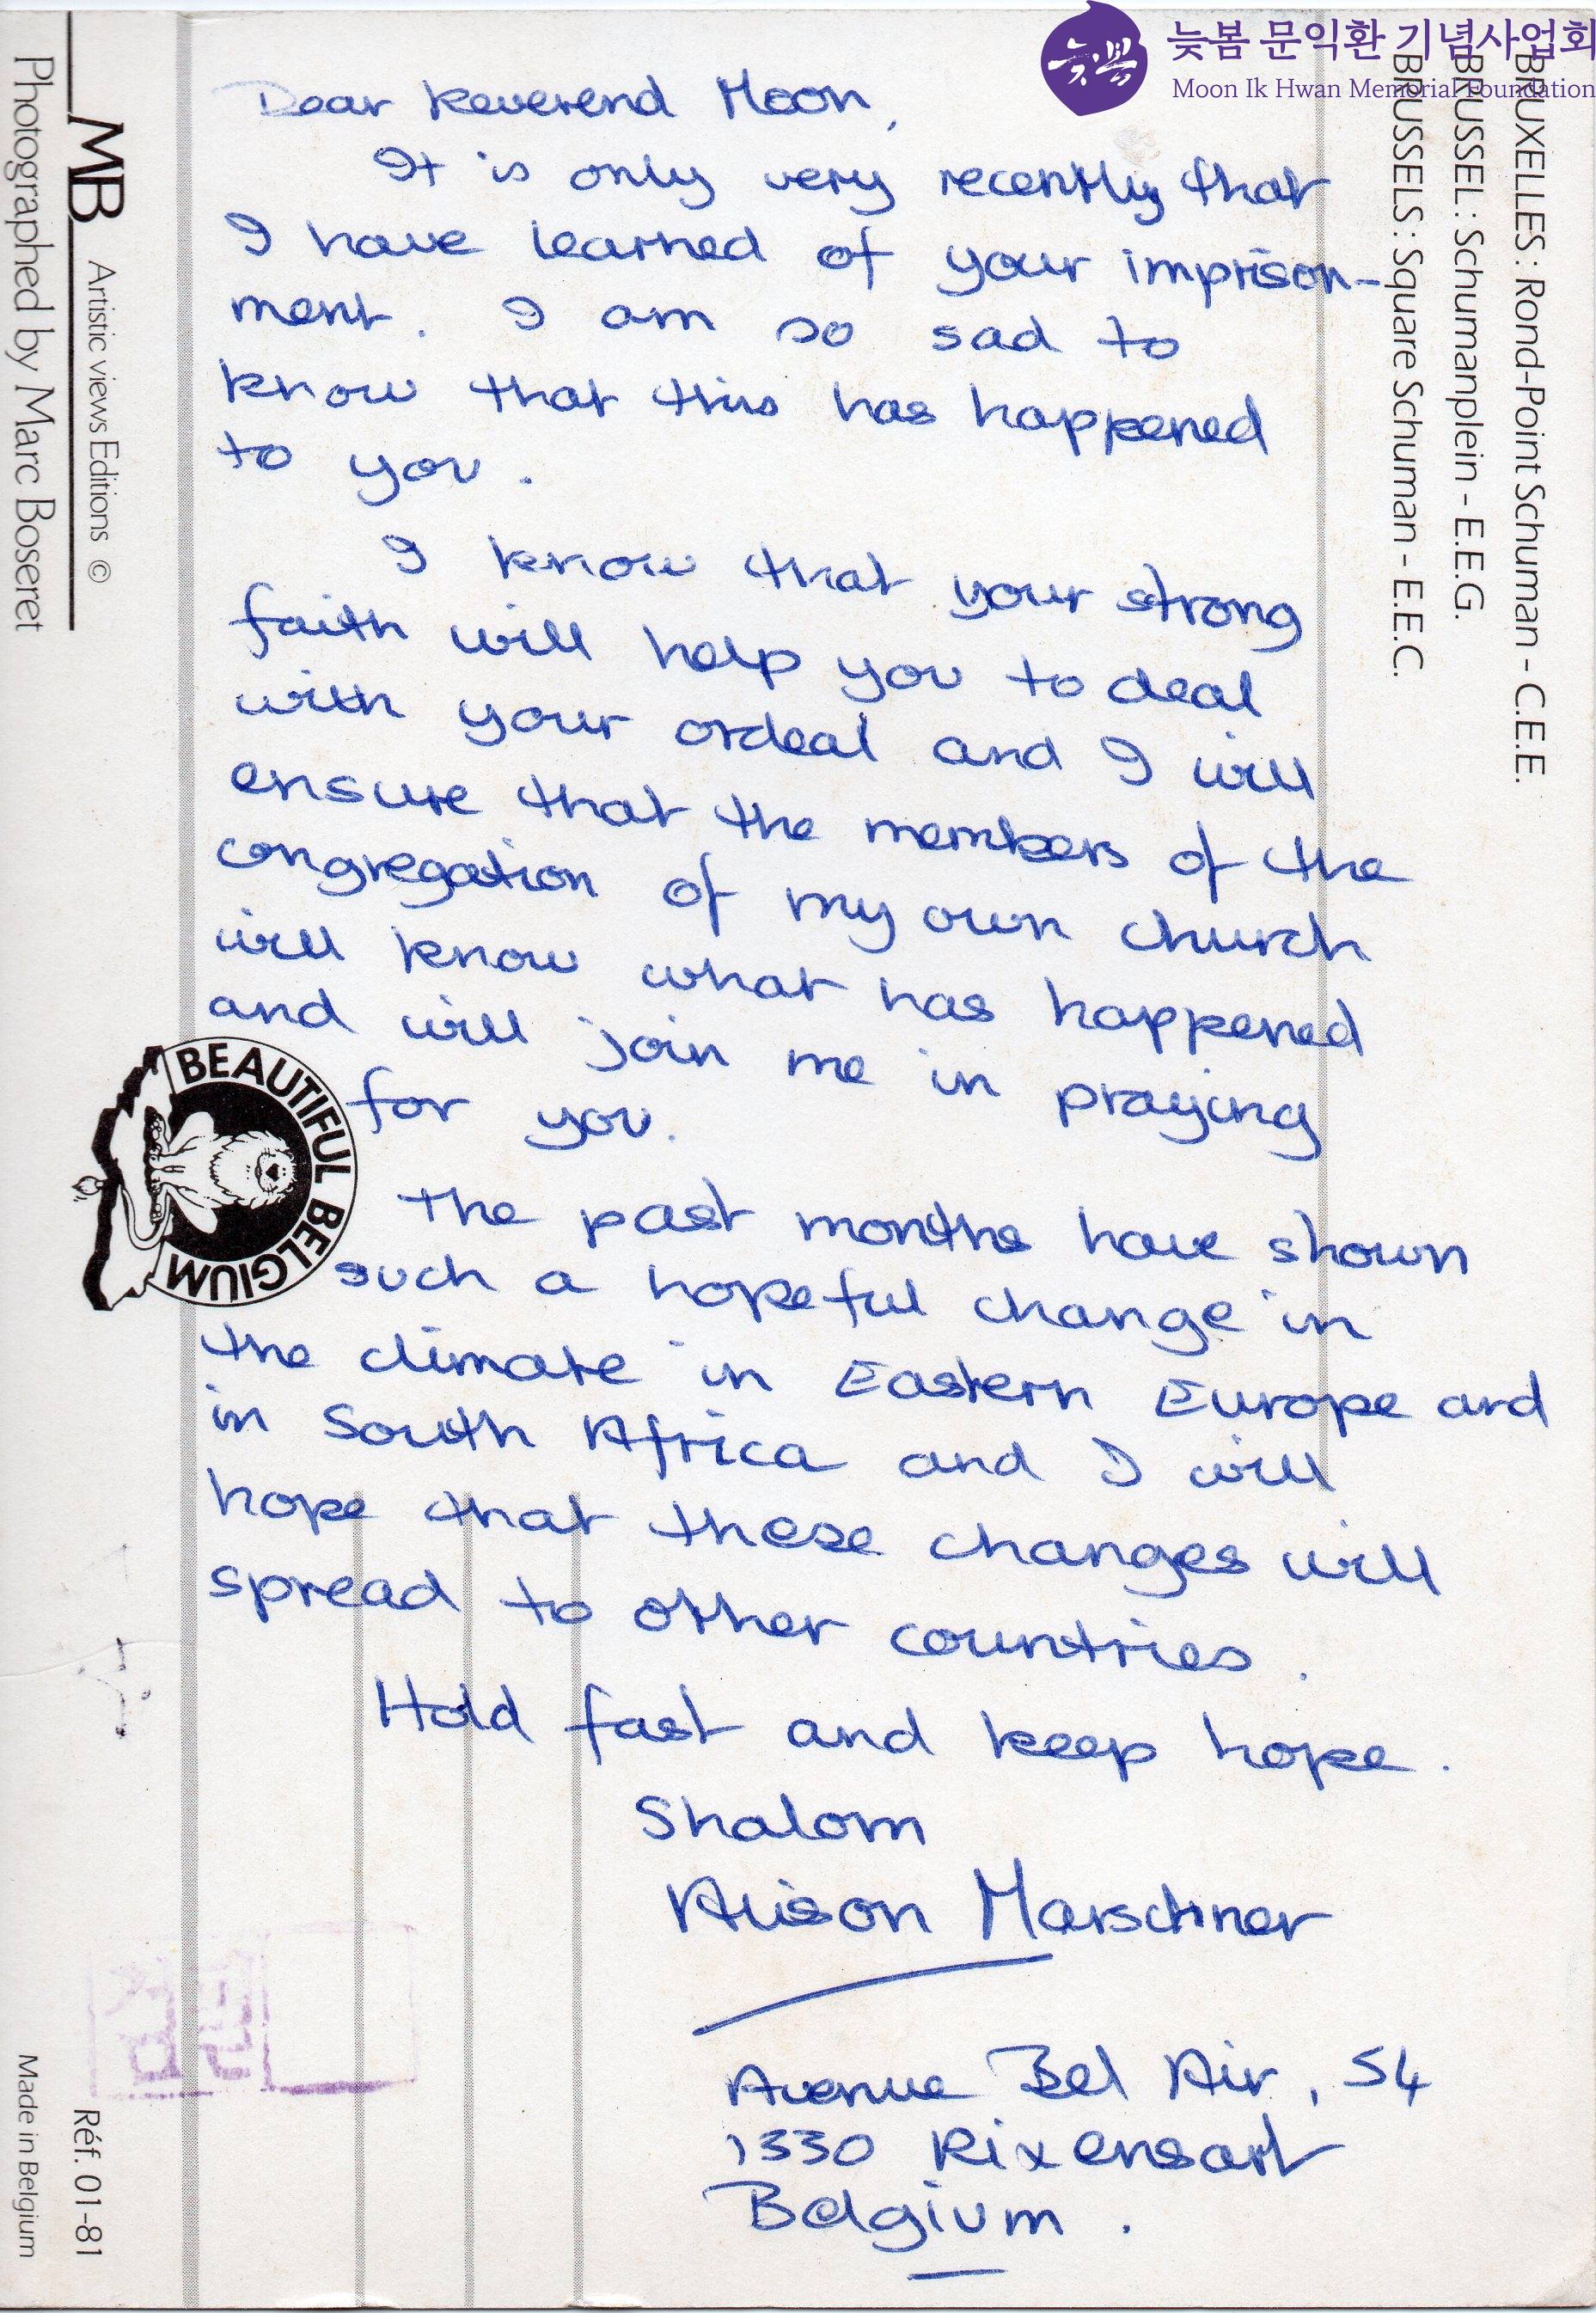 늦봄 문익환 기념사업회
Moon Ik Hwan Memorial Foundation
늦봄
BRUXELLES : Rond-Point Schuman - C.E.E.
BRUSSEL : Schumanplein - E.E.G.
BRUSSELS : Square Schuman - E.E.C.
Dear Reverend Moon,
It is only very recently that
I have learned of your imprison-
ment. I am so sad to
know that this has happened
to you.
I know that your strong
faith will help you to deal
with your ordeal and I will
ensure that the members of the
congregation of my own church
will know what has happened
and will join me in praying
for you.
The past months have shown
such a hopeful change in
the climate in Eastern Europe and
in South Africa and I will
hope that these changes will
spread to other countries.
Hold fast and keep hope.
Shalom
Alison Marschner
Avenue Bel Air, 54
1330 Rixensart
Belgium.
BEAUTIFUL BELGIUM
MB Artistic views Editions ©
Photographed by Marc Boseret
Réf. 01-81
Made in Belgium